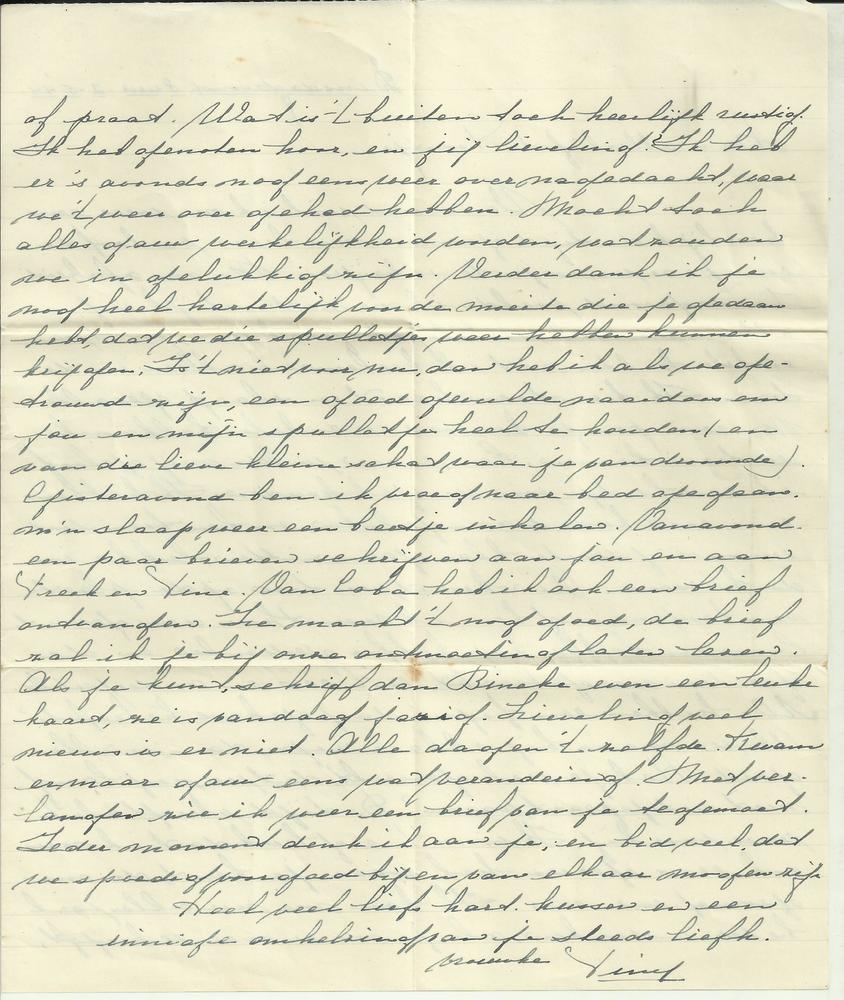 of praat. Wat is 't buiten toch heerlijk rustig.
Ik heb genoten hoor, en jij lieveling? Ik heb
er 's avonds nog eens weer over nagedacht, waar
we 't weer over gehad hebben. Mocht toch
alles gauw werkelijkheid worden, wat zouden
we in gelukkig zijn. Verder dank ik je
nog heel hartelijk voor de moeite die je gedaan
hebt, dat we die spulletjes weer hebben kunnen
krijgen. Is 't niet voor nu, dan heb ik als we ge-
trouwd zijn, een goed gevulde naaidoos om
jou en mijn spulletje heel te houden (en
van die lieve kleine schat waar je van droomde).
Gisteravond ben ik vroeg naar bed gegaan.
m'n slaap weer een beetje inhalen. Vanavond
een paar brieven schrijven aan jou en aan
Freek en Tine. Van Coba heb ik ook een brief
ontvangen. Ze maakt 't nog goed, de brief
zal ik je bij onze ontmoeting laten lezen.
Als je kunt, schrijf dan Bineke even een leuke
kaart, ze is vandaag jarig. Lieveling veel
nieuws is er niet. Alle dagen 't zelfde. Kwam
er maar gauw eens wat verandering. Met ver-
langen zie ik weer een brief van je tegemoet.
Ieder moment denk ik aan je, en bid veel, dat
we spoedig voorgoed bij en van elkaar mogen zijn
Heel veel liefs hart. kussen en een
innige omhelzing van je steeds liefh.
vrouwke